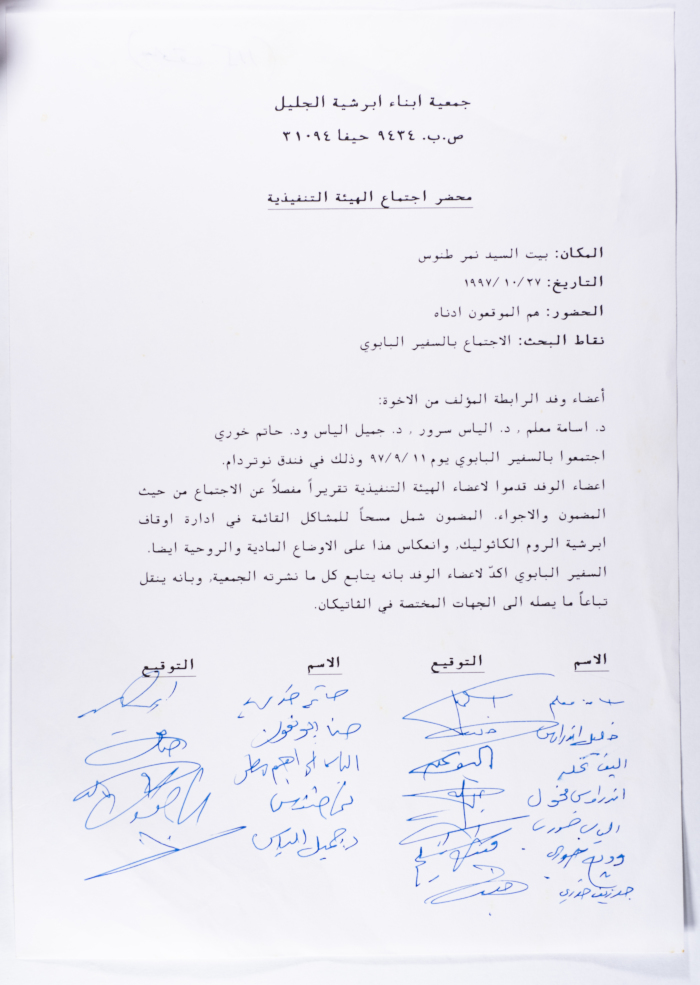 جمعية ابناء ابرشية الجليل
ص.ب. ٩٤٣٤ حيفا ٣١٠٩٤
محضر اجتماع الهيئة التنفيذية
المكان: بيت السيد نمر طنوس
التاريخ: ١٩٩٧/١٠/٢٧
الحضور: هم الموقعون ادناه
نقاط البحث: الاجتماع بالسفير البابوي
أعضاء وفد الرابطة المؤلف من الاخوة:
د. اسامة معلم , د. الياس سرور , د. جميل الياس ود. حاتم خوري
اجتمعوا بالسفير البابوي يوم ٩٧/٩/١١ وذلك في فندق نوتردام.
اعضاء الوفد قدموا لاعضاء الهيئة التنفيذية تقريراً مفصلاً عن الاجتماع من حيث
المضمون والاجواء. المضمون شمل مسحاً للمشاكل القائمة في ادارة اوقاف
ابرشية الروم الكاثوليك, وانعكاس هذا على الاوضاع المادية والروحية ايضا.
السفير البابوي اكدّ لاعضاء الوفد بانه يتابع كل ما نشرته الجمعية, وبانه ينقل
تباعاً ما يصله الى الجهات المختصة في الڤاتيكان.
الاسم التوقيع الاسم التوقيع
معلم حاتم خوري
خليل اندراوس حنا ابو نفون
الياس ابراهيم مطر
اندراوس مخول
الياس خوري د. جميل الياس
وديع خوري
خوري